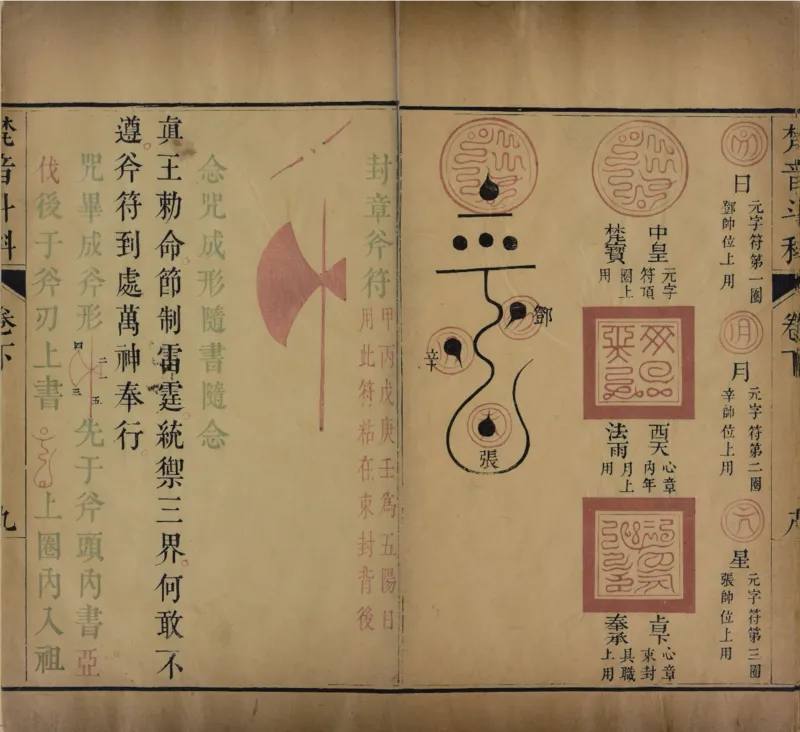 梵音斗科 卷下
日 元字符第一圈
鄧帥位上用
月 元字符第二圈
辛帥位上用
星 元字符第三圈
張帥位上用
中皇
梵寶
元字
符頂
圈上
用
天
法雨
心章
內年
月上
用
下
奉承
心章
束封
具職
上用
鄧
辛
張
封章斧符
甲丙戊庚壬為五陽日
用此符粘在束封背後
念咒成形隨書隨念
真王勅命節制雷霆統禦三界何敢不
遵斧符到處萬神奉行
咒畢成斧形 一 二 三 四 五 先于斧頭內書亞
伐後于斧刃上書 上圈內入祖
梵音斗科 卷下 九